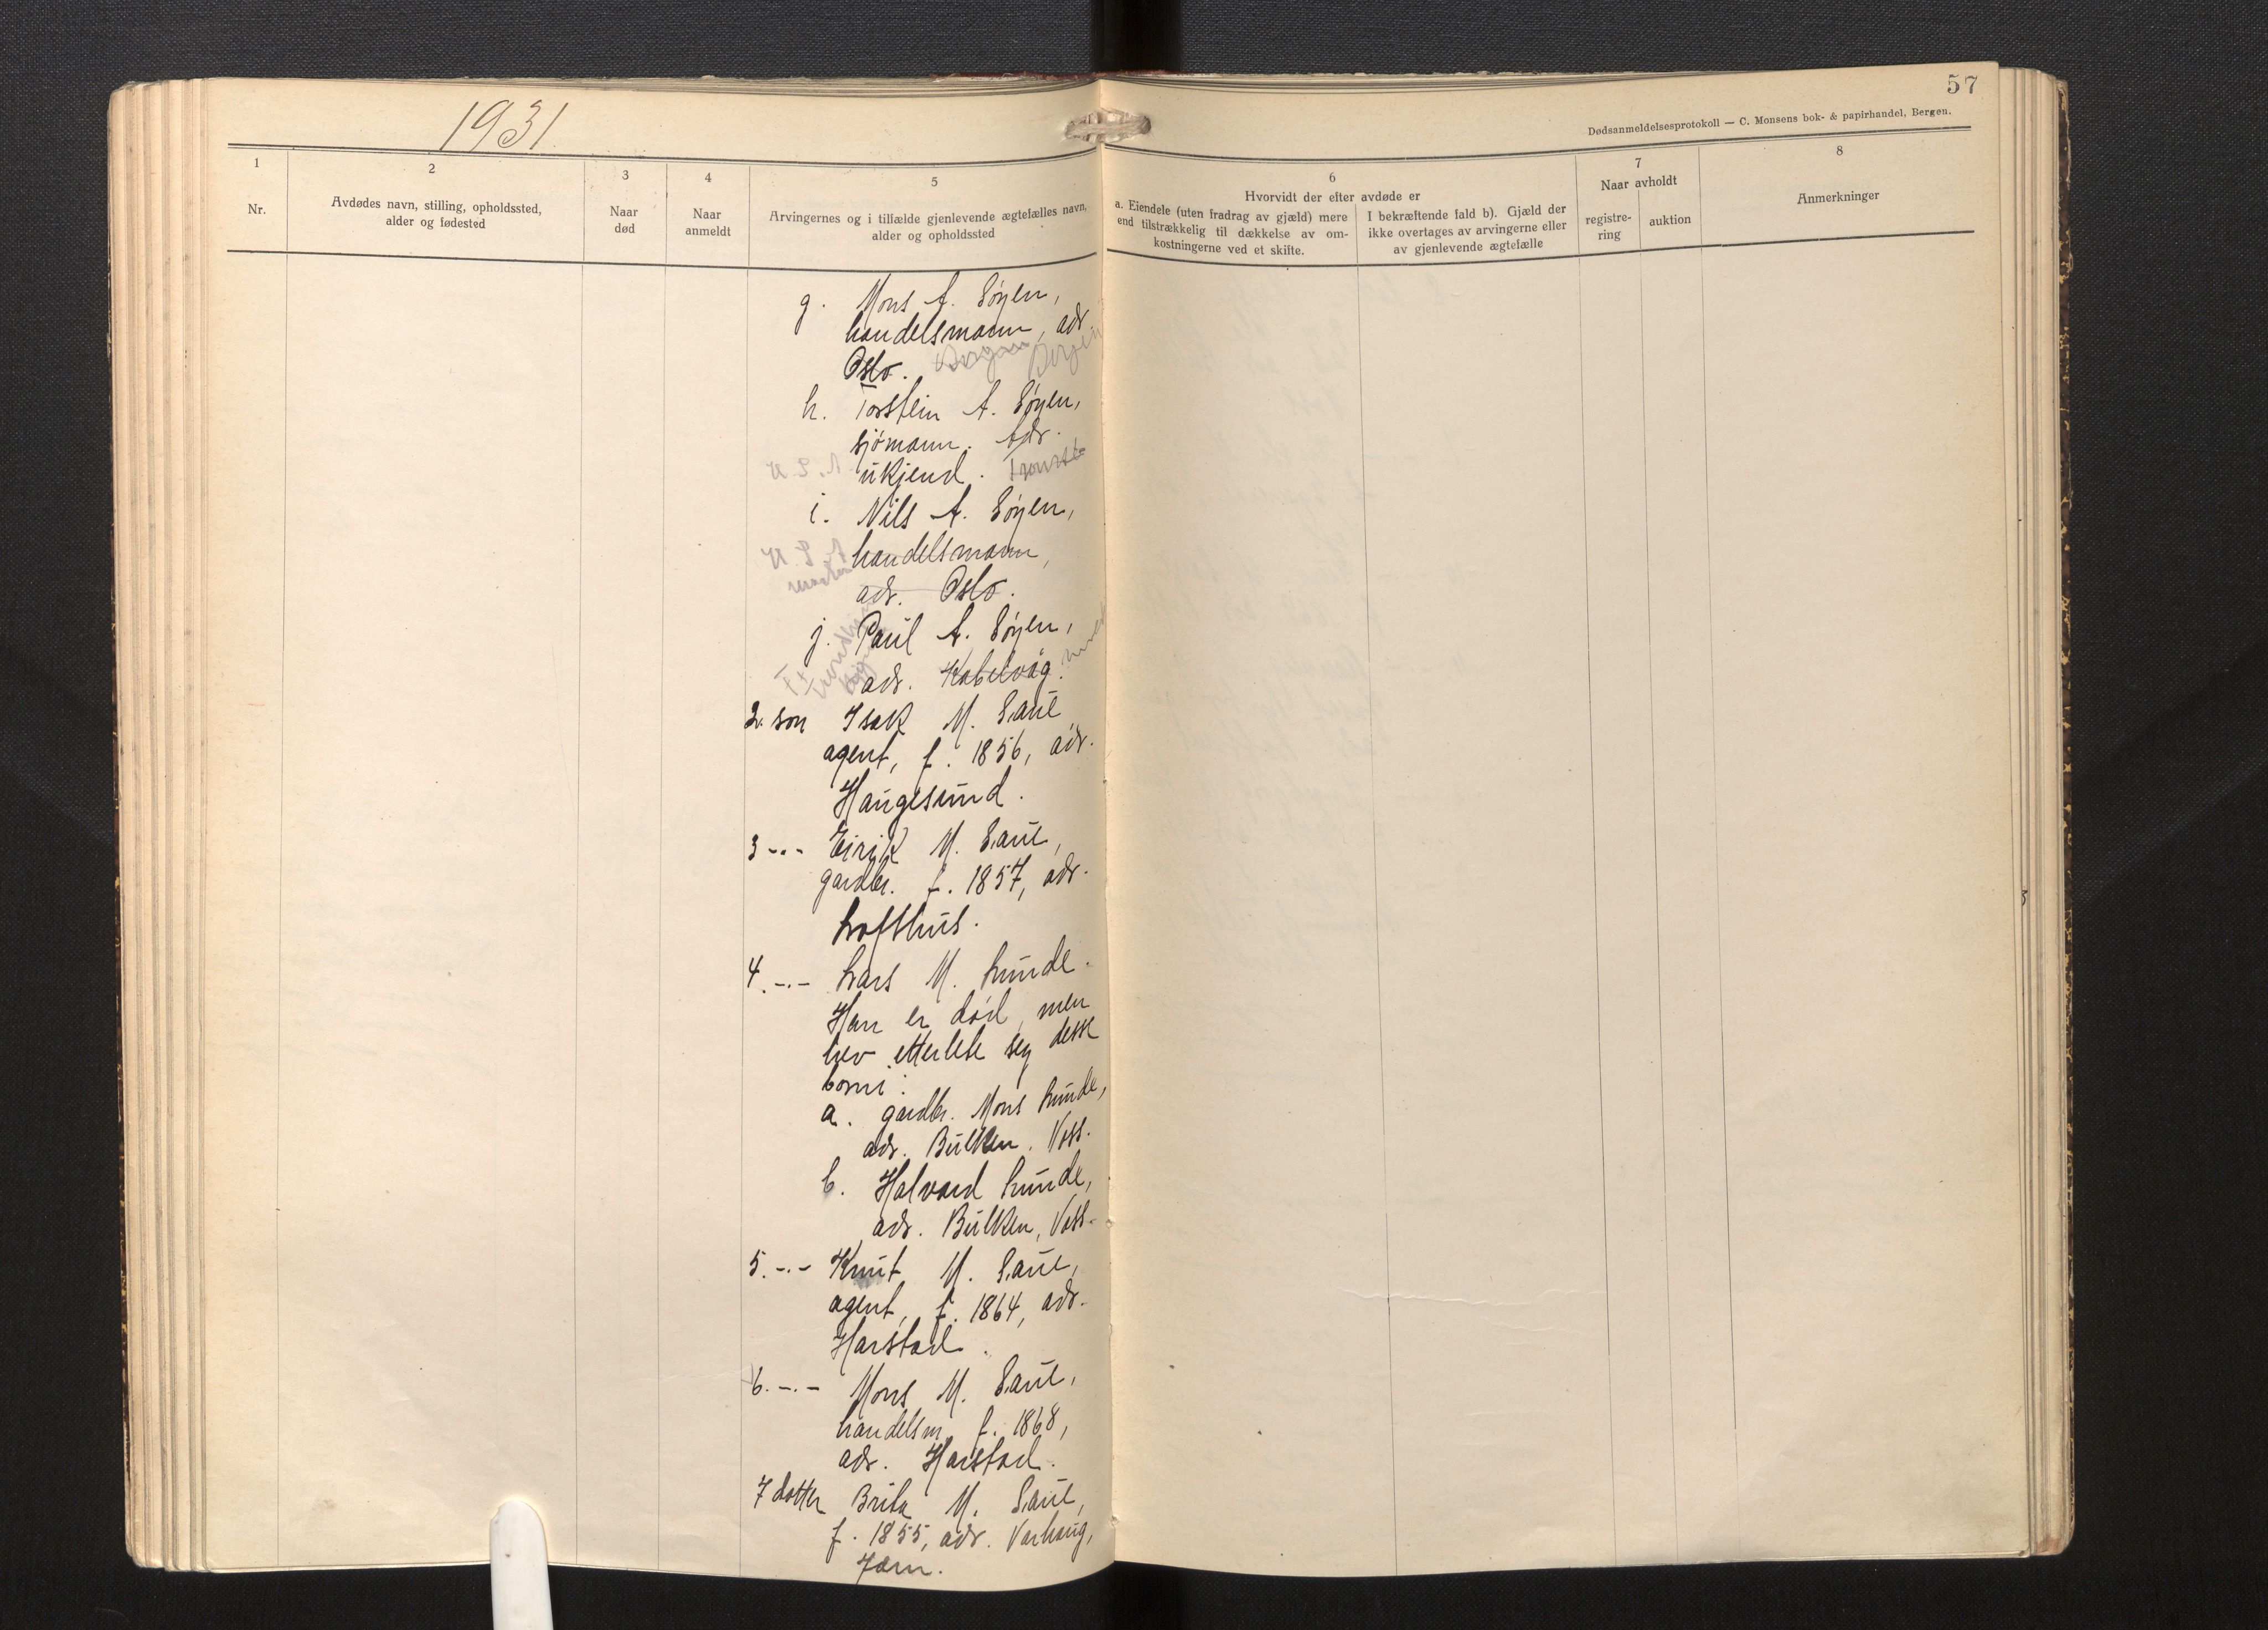 57
1931
Dødsanmeldelsesprotokoll — C. Monsens bok- & papirhandel, Bergen.
1
Nr.
2
Avdødes navn, stilling, opholdssted,
alder og fødested
3
Naar
død
4
Naar
anmeldt
5
Arvingernes og i tilfælde gjenlevende ægtefælles navn,
alder og opholdssted
6
Hvorvidt der efter avdøde er
a. Eiendele (uten fradrag av gjæld) mere
end tilstrækkelig til dækkelse av om-
kostningerne ved et skifte.
I bekræftende fald b). Gjæld der
ikke overtages av arvingerne eller
av gjenlevende ægtefælle
7
Naar avholdt
registre-
ring
auktion
8
Anmerkninger
g. Mons A. Søyen,
handelsmann, adr.
Oslo. Bergen Bergen
h. Torstein A. Søyen,
sjömann. Adr.
U.S.A. ukjend. Tromsö
i. Nils A. Søyen,
U.S.A handelsmann,
adr. Oslo.
j. Paul A. Søyen,
adr. Kabelvåg.
2. son Isak M. Saue
agent, f. 1856, adr.
Haugesund.
3 -.- Eirik M. Saue,
gardbr. f. 1857, adr.
Lofthus.
4. -.- Lars M. Lunde.
Han er död, men
hev etterlete seg desse
borni:
a. gardbr. Mons Lunde,
adr. Bulken, Voss.
b. Halvard Lunde,
adr. Bulken, Voss.
5. -.- Knut M. Saue,
agent, f. 1864, adr.
Harstad.
6. -.- Mons M. Saue,
handelsm. f. 1868,
adr. Harstad.
7 dotter Brita M. Saue,
f. 1855, adr. Varhaug,
Jærn.